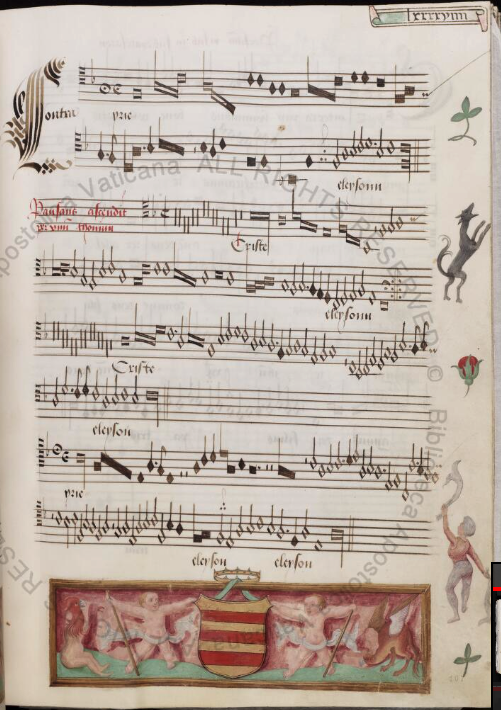 Contra prie
eleysonn
Pausans ascendit
per unum thonum
Criste
eleysonn
Criste
eleyson
prie
eleyson eleyson
Biblioteca Apostolica Vaticana ALL RIGHTS RESERVED ©